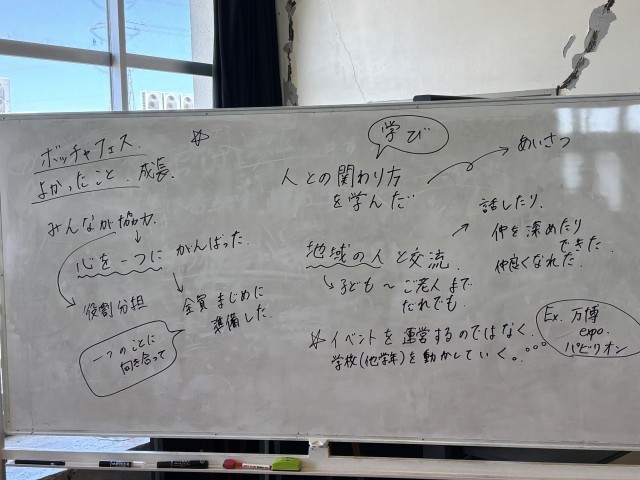 ボッチャフェス
よかったこと 成長
みんなが協力
心を一つに がんばった
役割分担
全員まじめに
準備した
一つのことに
向き合って
学び
人との関わり方
を学んだ
あいさつ
地域の人と交流
話したり、
仲を深めたり
できた
仲良くなれた
子ども〜ご老人まで
だれでも
イベントを運営するのではなく、
学校(他学年)を動かしていく。
Ex. 万博
expo.
パビリオン